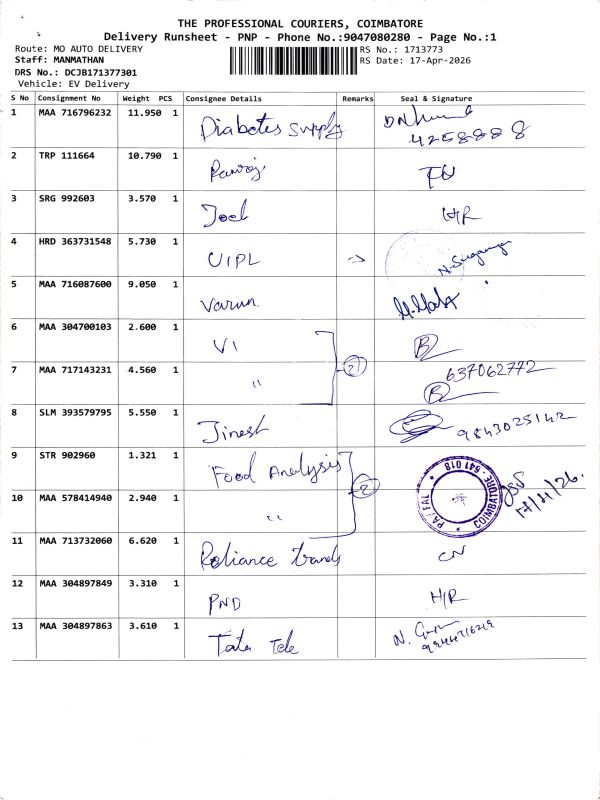 THE PROFESSIONAL COURIERS, COIMBATORE
Delivery Runsheet - PNP - Phone No.:9047080280 - Page No.:1
Route: MO AUTO DELIVERY
RS No.: 1713773
Staff: MANMATHAN
RS Date: 17-Apr-2026
DRS No.: DCJB171377301
Vehicle: EV Delivery
S No Consignment No Weight PCS Consignee Details Remarks Seal & Signature
1 MAA 716796232 11.950 1 Diabetes Supply
4258888
2 TRP 111664 10.790 1
3 SRG 992603 3.570 1 Joel H/R
4 HRD 363731548 5.730 1 UIPL
5 MAA 716087600 9.050 1 Varun
6 MAA 304700103 2.600 1 VI
2
7 MAA 717143231 4.560 1 " 637062772
8 SLM 393579795 5.550 1 Jinesh 9843025142
9 STR 902960 1.321 1 Food Analysis
2
COIMBATORE - 641 018
10 MAA 578414940 2.940 1 " 17/4/26.
11 MAA 713732060 6.620 1 Reliance trands
12 MAA 304897849 3.310 1 PND H/R
13 MAA 304897863 3.610 1 Tata Tele